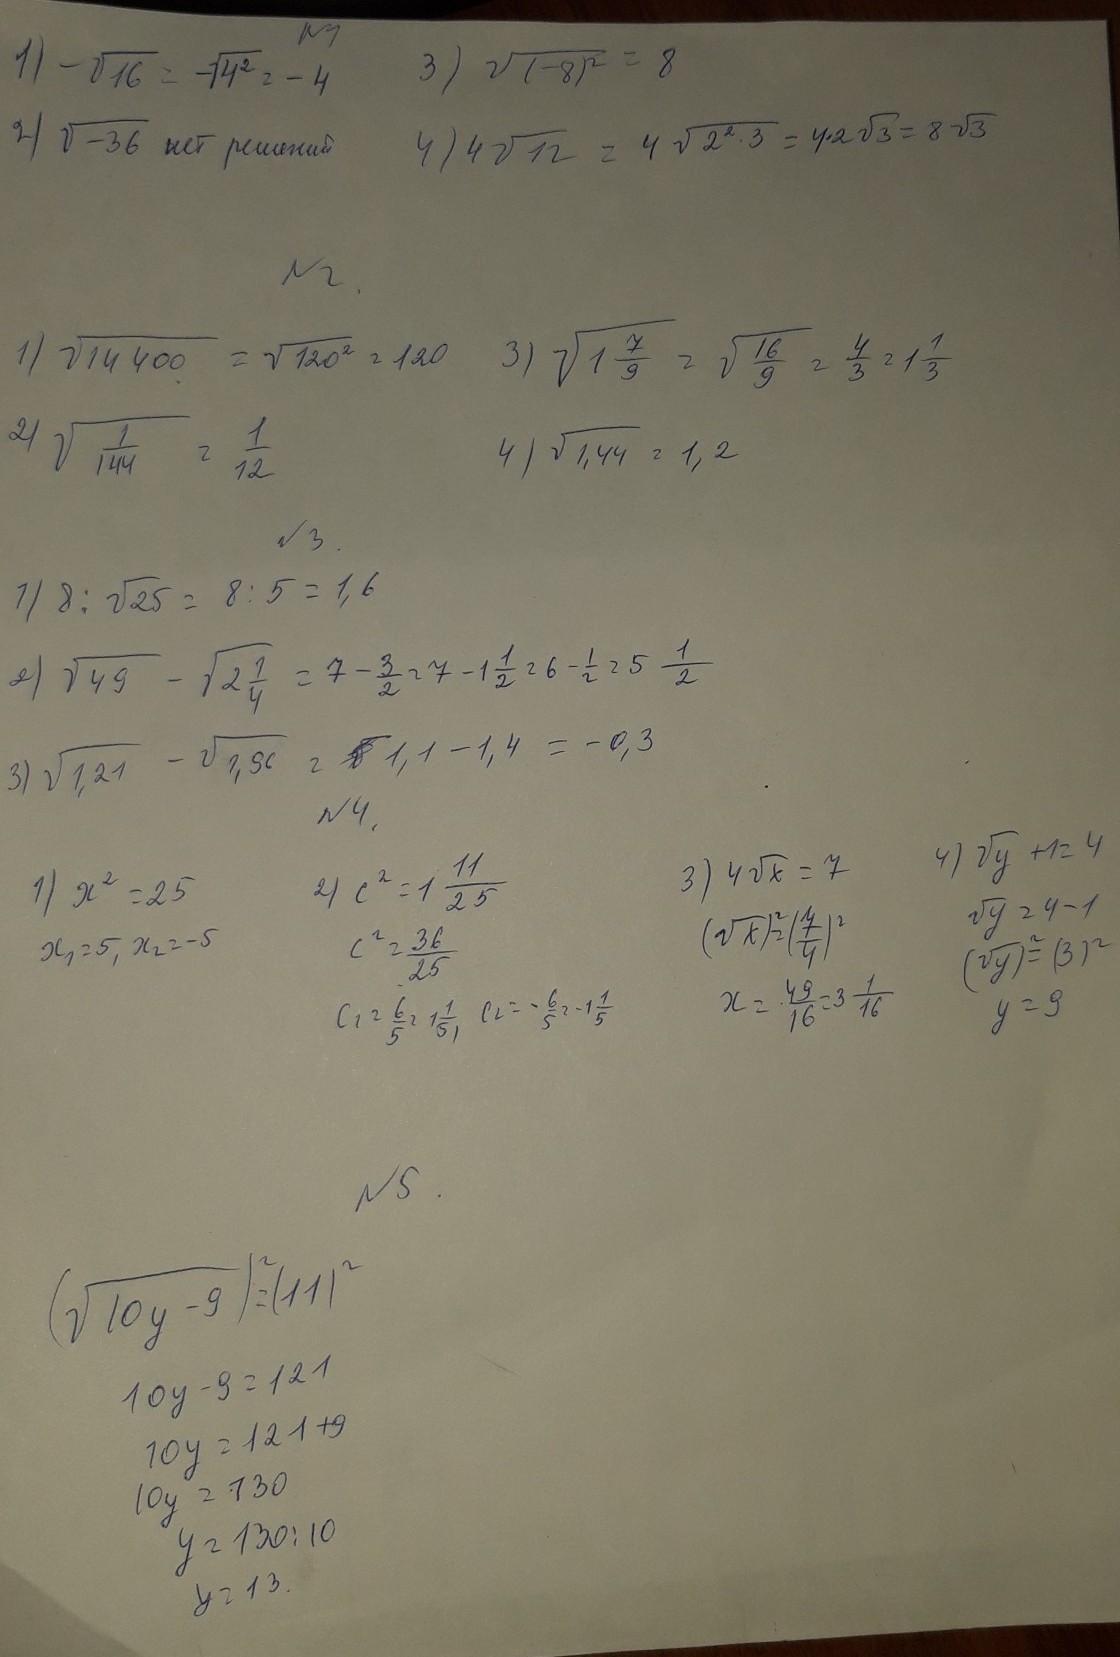 №1
1) -√16 = -√4² = -4 3) √(-8)² = 8
2) √-36 нет решений 4) 4√12 = 4√2²·3 = 4·2√3 = 8√3
№2.
1) √14400 = √120² = 120 3) √1 7/9 = √16/9 = 4/3 = 1 1/3
2) √1/144 = 1/12 4) √1,44 = 1,2
√3.
1) 8 : √25 = 8 : 5 = 1,6
2) √49 - √2 1/4 = 7 - 3/2 = 7 - 1 1/2 = 6 - 1/2 = 5 1/2
3) √1,21 - √1,96 = 1,1 - 1,4 = -0,3
№4.
1) x² = 25 2) c² = 1 11/25 3) 4√x = 7 4) √y + 1 = 4
x₁ = 5, x₂ = -5 c² = 36/25 (√x)² = (7/4)² √y = 4 - 1
c₁ = 6/5 = 1 1/5, c₂ = -6/5 = -1 1/5 x = 49/16 = 3 1/16 (√y)² = (3)²
y = 9
№5.
(√10y - 9)² = (11)²
10y - 9 = 121
10y = 121 + 9
10y = 130
y = 130 : 10
y = 13.